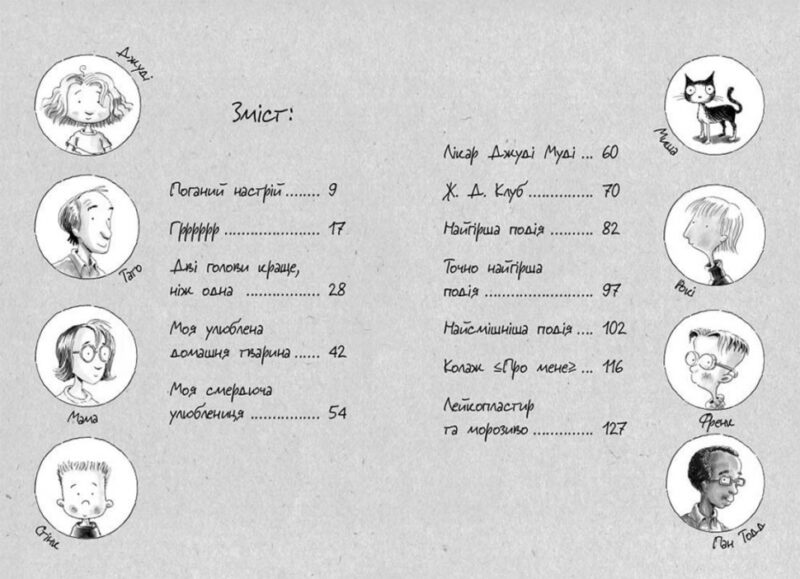 Джуді
Тато
Мама
Стінк
Зміст:
Поганий настрій ........ 9
Гррррр ...................... 17
Дві голови краще,
ніж одна ................. 28
Моя улюблена
домашня тварина ...... 42
Моя смердюча
улюблениця ............... 54
Лікар Джуді Муді ... 60
Ж. Д. Клуб ............... 70
Найгірша подія ........ 82
Точно найгірша
подія ....................... 97
Найсмішніша подія .... 102
Колаж ≤Про мене≥ ... 116
Лейкопластир
та морозиво ............. 127
Миша
Рокі
Френк
Пан Тодд